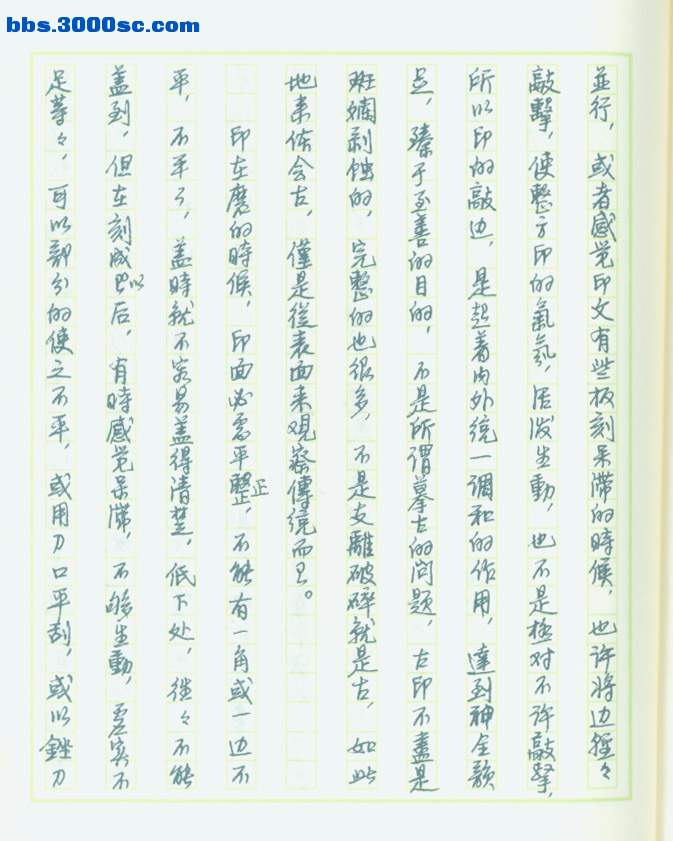 bbs.3000sc.com
並行，或者感觉印文有些板刻呆滞的時候，也许將边輕々
敲擊，使整方印的氣氛，活泼生動，也不是絶对不许敲擊，
所以印的敲边，是起着内外統一调和的作用，達到神全韻
足，臻于至善的目的，不是所谓摹古的问题，古印不盡是
斑斓剥蚀的，完整的也很多，不是支離破碎就是古，如此
地来体会古，僅是從表面来观察傳統而已。
印在磨的時候，印面必需平整正，不能有一角或一边不
平，不平了，盖時就不容易盖得清楚，低下处，往々不能
盖到，但在刻成以后，有時感觉呆滞，不够生動，虚实不
足等々，可以部分的使之不平，或用刀口平刮，或以銼刀